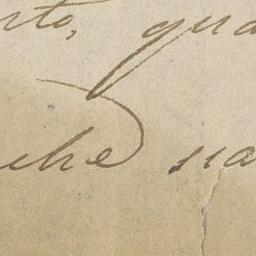 nto, qua
che na